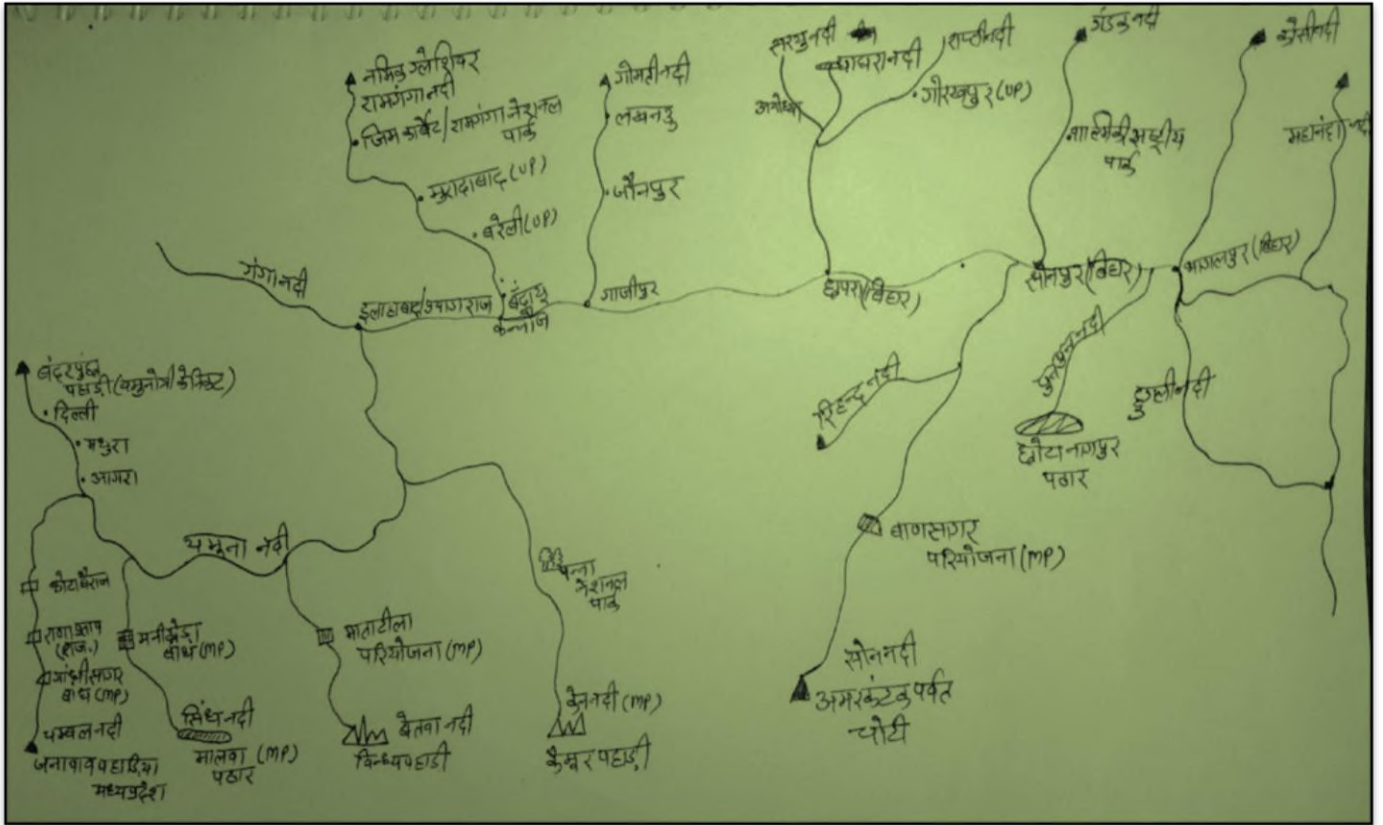 नमिक ग्लेशियर
रामगंगा नदी
जिम कार्बेट/रामगंगा नेशनल
पार्क
मुरादाबाद (UP)
बरेली (UP)
गोमती नदी
लखनऊ
जौनपुर
सरयु नदी
घाघरा नदी
राप्ती नदी
अयोध्या
गोरखपुर (UP)
गंडक नदी
वाल्मिकी राष्ट्रीय
पार्क
कोसी नदी
महानंदा नदी
गंगा नदी
इलाहाबाद/प्रयागराज
बदायु
कन्नौज
गाजीपुर
छपरा (बिहार)
सोनपुर (बिहार)
भागलपुर (बिहार)
पुनपुन नदी
हुगली नदी
रिहन्द नदी
छोटा नागपुर
पठार
बंदरपुंछ
पहाड़ी (यमुनोत्री के निकट)
दिल्ली
मथुरा
आगरा
यमुना नदी
कोटा बैराज
राणा प्रताप
(राज.)
गांधी सागर
बांध (MP)
चम्बल नदी
जनापाव पहाडिया
मध्यप्रदेश
मनीखेड़ा
बांध (MP)
सिंध नदी
मालवा (MP)
पठार
माताटीला
परियोजना (MP)
बेतवा नदी
विन्ध्य पहाडी
पन्ना
नेशनल
पार्क
केन नदी (MP)
कैमूर पहाड़ी
बाणसागर
परियोजना (MP)
सोन नदी
अमरकंटक पर्वत
चोटी